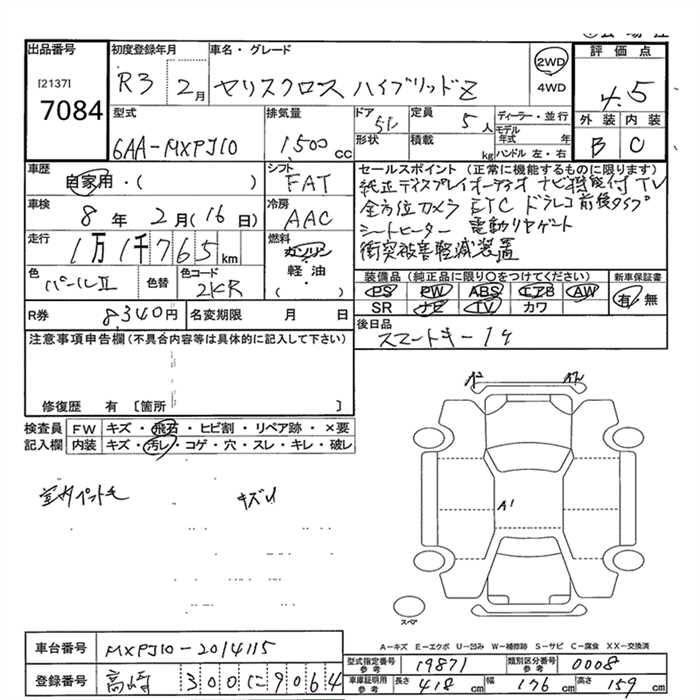 出品番号 初度登録年月 車名・グレード 評価点
[2137] 7084 R3 2月 ヤリスクロス ハイブリッドZ 2WD 4WD 4.5
型式 排気量 ドア 定員 ディーラー・並行 外装 内装
6AA-MXPJ10 1500cc 5D 5人 モデル年式 年 B C
形状 積載 kg ハンドル 左・右
車歴 自家用・( ) シフト FAT
セールスポイント (正常に機能するものに限ります)
純正ディスプレイオーディオ ナビ機能付 TV
車検 8年 2月(16日) 冷房 AAC
全方位カメラ ETC ドラレコ前後タイプ
シートヒーター 電動リヤゲート
走行 1万1千765km 燃料 ガソリン 軽油・( )
衝突被害軽減装置
色 パールII 色替 色コード 2KR
装備品 (純正品に限り○をつけてください) 新車保証書
PS PW ABS エアB AW 有・無
SR ナビ TV カワ
R券 8,340円 名変期限 月 日
後日品 スマートキー1ヶ
注意事項申告欄(不具合内容等は具体的に記入して下さい)
修復歴 有 〔箇所 〕
検査員 FW キズ・飛石・ヒビ割・リペア跡・×要
記入欄 内装 キズ・汚レ・コゲ・穴・スレ・キレ・破レ
室内ペット毛 キズU
A1
スペア
A-キズ E-エクボ U-凹み W-補修跡 S-サビ C-腐食 XX-交換済
車台番号 MXPJ10-2014115
型式指定番号 参考 19871 類別区分番号 参考 0008
登録番号 高崎 300 に 9064
車庫証明用 参考 長さ 418cm 幅 176cm 高さ 159cm